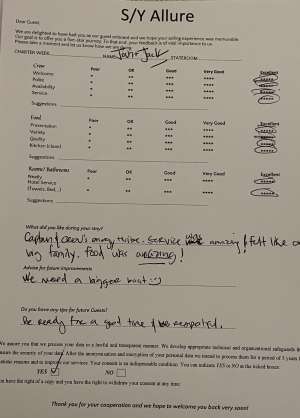 S/Y Allure
Dear Guest
We are delighted to have had you as our guest onboard and we hope your sailing experience was memorable.
Our goal is to offer you a five-star journey. To that end, your feedback is of vital importance to us.
Please take a moment and let us know how we
CHARTER WEEK NAME Jack STATEROOM
Crew Poor OK Good Very Good Excellent
Welcome * ** *** **** *****
Polite * ** *** **** *****
Availability * ** *** **** *****
Service * ** *** **** *****
Suggestions
Food Poor OK Good Very Good Excellent
Presentation * ** *** **** *****
Variety * ** *** **** *****
Quality * ** *** **** *****
Kitchen * ** *** **** *****
Suggestions
Rooms/ Bathrooms Poor OK Good Very Good Excellent
* ** *** **** *****
Hotel Service
(Towels, Bed...) * ** *** **** *****
Suggestions
What did you like during your stay?
Captain & crew's energy + vibe. Service was amazing, felt like a
big family. Food was amazing!
Advise for future improvements
We need a bigger boat :-)
Do you have any tips for future Guests?
Be ready for a good time &
We assure you that we process your data in a lawful and transparent manner. We develop appropriate technical and organisational safeguards
ensure the security of your data. After the anonymization and encryption of your personal data we intend to process them for a period of 5 years
statistic reasons and to improve our services. Your consent is an indispensable condition. You can indicate YES or NO at the ticked boxes:
YES NO
You have the right of a copy and you have the right to withdraw your consent at any time.
Thank you for your cooperation and we hope to welcome you back very soon!